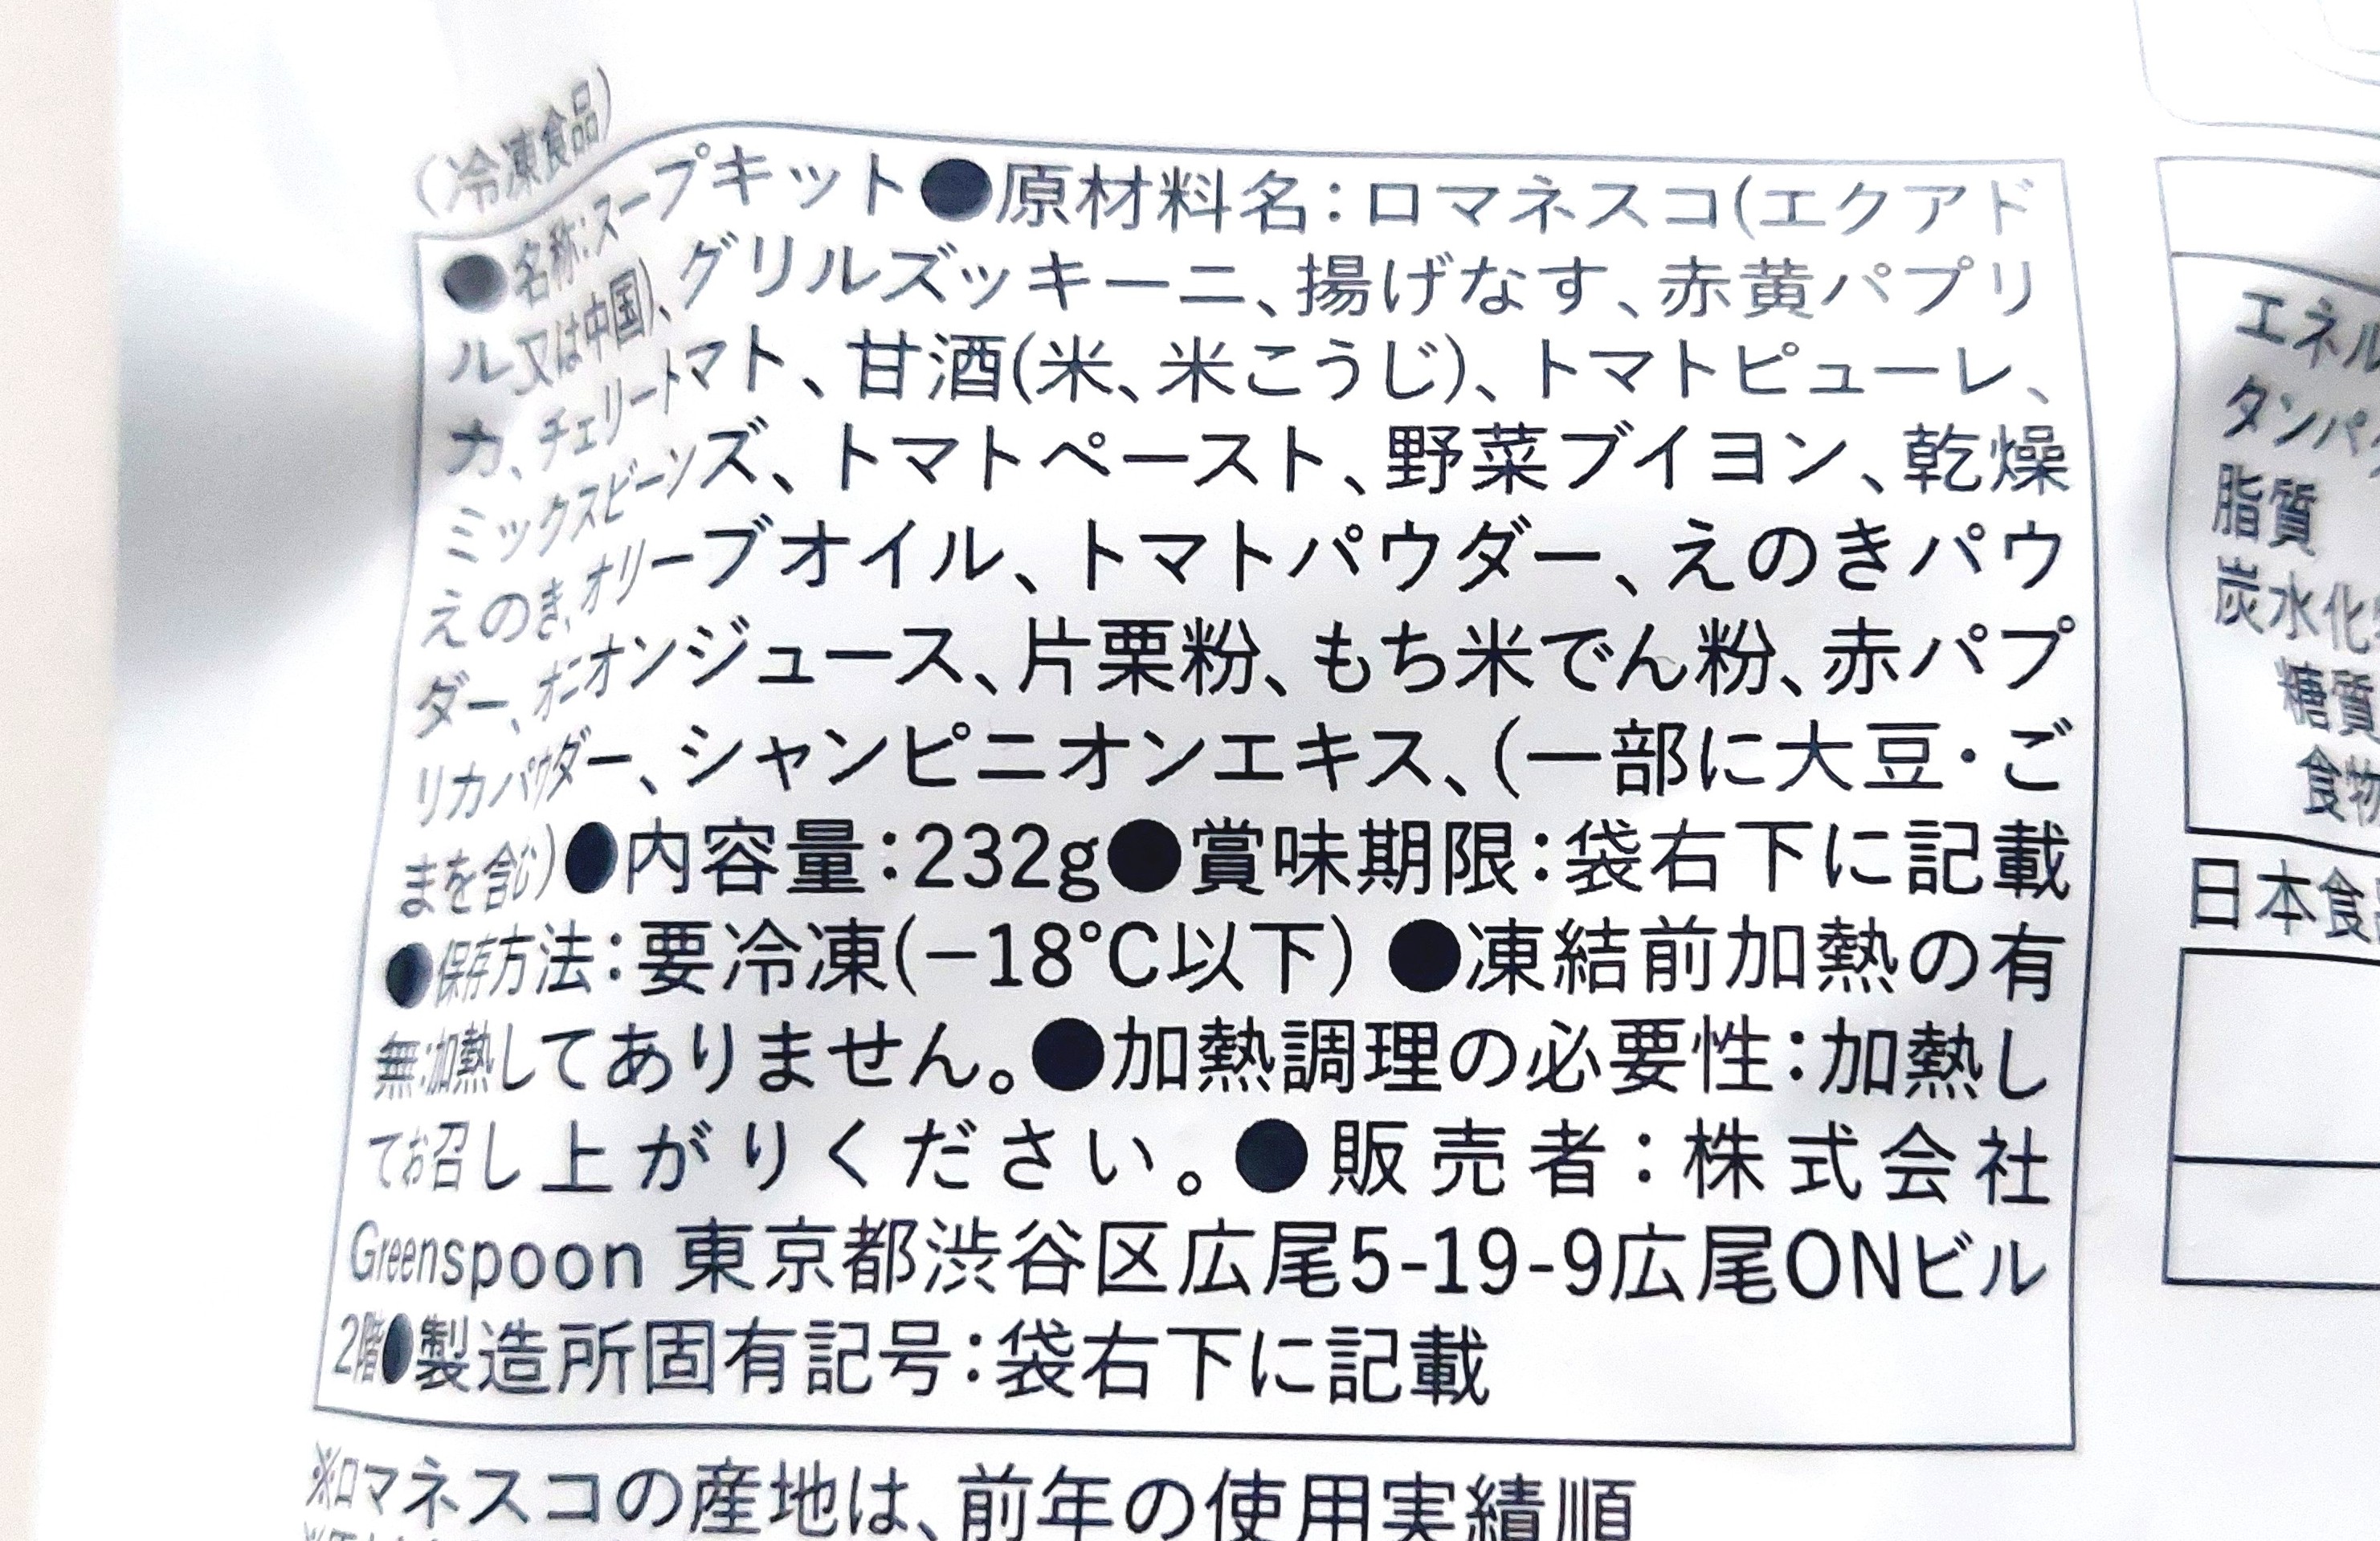 (冷凍食品)
●名称:スープキット●原材料名:ロマネスコ(エクアド
ル又は中国)、グリルズッキーニ、揚げなす、赤黄パプリ
カ、チェリートマト、甘酒(米、米こうじ)、トマトピューレ、
ミックスビーンズ、トマトペースト、野菜ブイヨン、乾燥
えのき、オリーブオイル、トマトパウダー、えのきパウ
ダー、オニオンジュース、片栗粉、もち米でん粉、赤パプ
リカパウダー、シャンピニオンエキス、(一部に大豆・ご
まを含む)●内容量:232g●賞味期限:袋右下に記載
●保存方法:要冷凍(−18℃以下) ●凍結前加熱の有
無:加熱してありません。●加熱調理の必要性:加熱し
てお召し上がりください。●販売者:株式会社
Greenspoon 東京都渋谷区広尾5-19-9広尾ONビル
2階●製造所固有記号:袋右下に記載
※ロマネスコの産地は、前年の使用実績順
エネル
タンパク
脂質
炭水化
糖質
食物
日本食